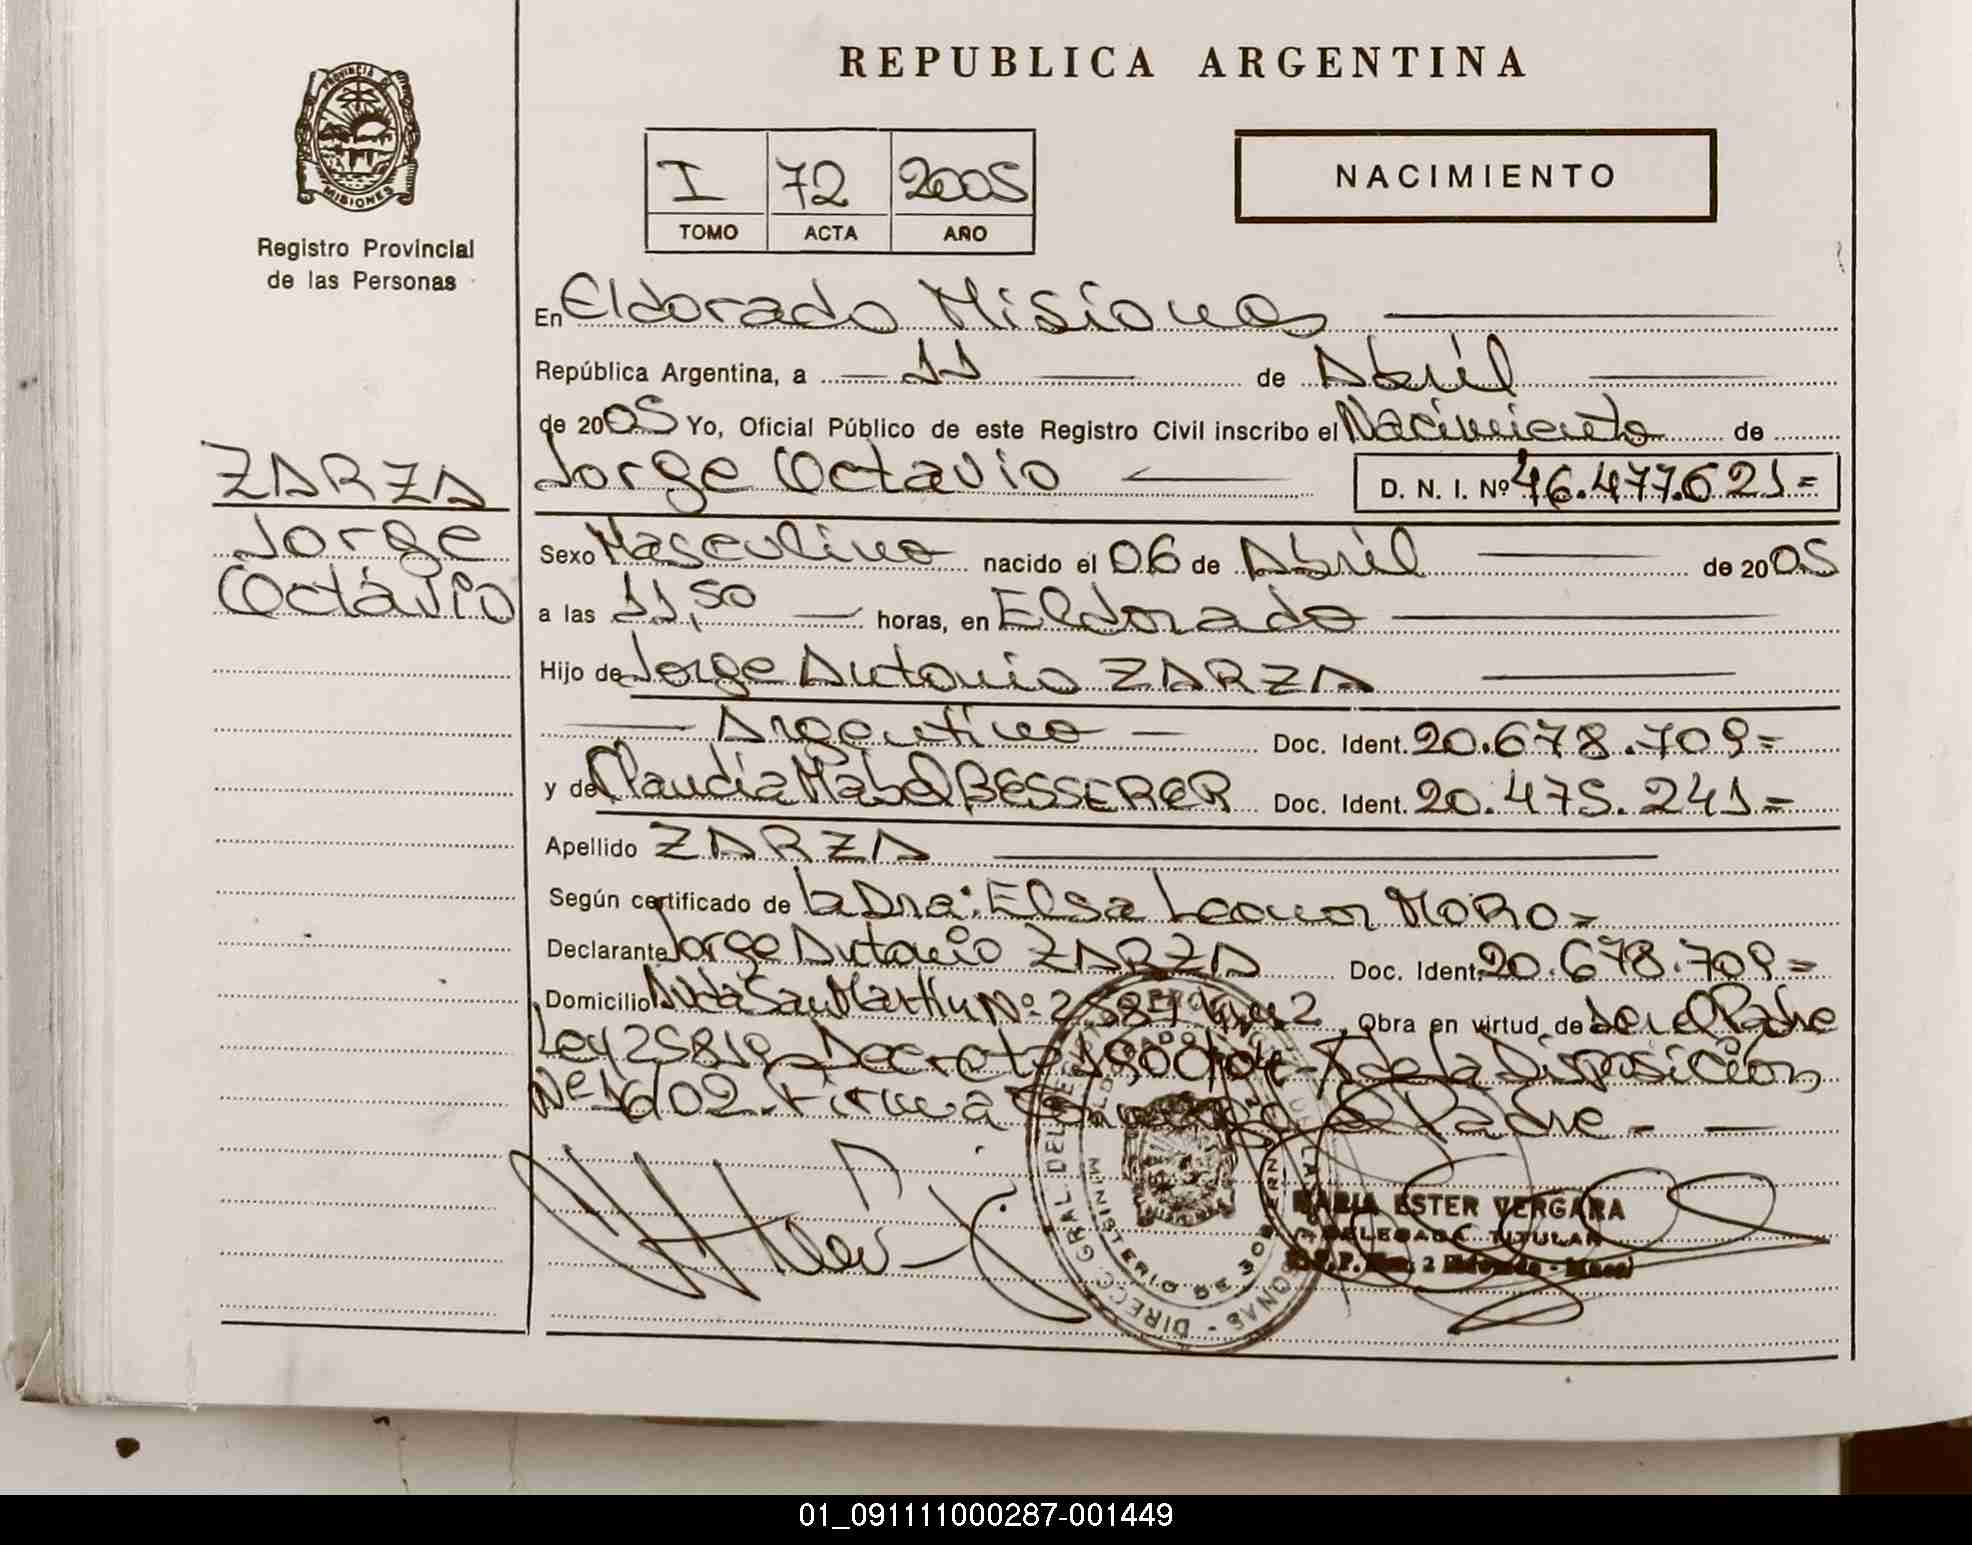 REPUBLICA ARGENTINA
PROVINCIA DE MISIONES
Registro Provincial
de las Personas
I 72 2005
TOMO ACTA AÑO
NACIMIENTO
En Eldorado Misiones
República Argentina, a 11 de Abril
de 2005 Yo, Oficial Público de este Registro Civil inscribo el Nacimiento de
ZARZA
Jorge
Octavio
Jorge Octavio D. N. I. Nº 46.477.621=
Sexo Masculino nacido el 06 de Abril de 2005
a las 11,50 horas, en Eldorado
Hijo de Jorge Antonio ZARZA
Argentino Doc. Ident. 20.678.709=
y de Claudia Mabel BESSERER Doc. Ident. 20.475.241=
Apellido ZARZA
Según certificado de la Dra: Elsa Leonor MORO=
Declarante Jorge Antonio ZARZA Doc. Ident. 20.678.709=
Domicilio Avda San Martín Nº 2584 Km 2 Obra en virtud de ser el Padre
Ley 25819 Decreto 1900/04 de la Disposición
Nº 16/02. Firma el Padre
MARIA ESTER VERGARA
DELEGADA TITULAR
01_091111000287-001449